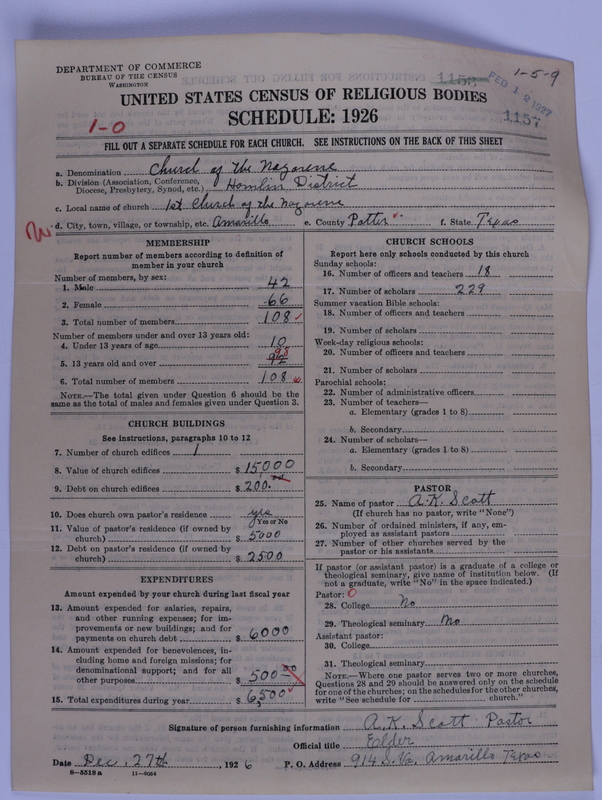 DEPARTMENT OF COMMERCE
BUREAU OF THE CENSUS
WASHINGTON
1-5-9
1158
FEB 12 1927
1157
UNITED STATES CENSUS OF RELIGIOUS BODIES
SCHEDULE: 1926
1-0
FILL OUT A SEPARATE SCHEDULE FOR EACH CHURCH. SEE INSTRUCTIONS ON THE BACK OF THIS SHEET
a. Denomination Church of the Nazarene
b. Division (Association, Conference, Diocese, Presbytery, Synod, etc.) Hamlin District
c. Local name of church 1st Church of the Nazarene
d. City, town, village, or township, etc. Amarillo e. County Potter f. State Texas
MEMBERSHIP
Report number of members according to definition of
member in your church
Number of members, by sex:
1. Male 42
2. Female 66
3. Total number of members 108
Number of members under and over 13 years old:
4. Under 13 years of age 10
5. 13 years old and over 92 98
6. Total number of members 108
NOTE.—The total given under Question 6 should be
same as the total of males and females given under Question 3.
CHURCH BUILDINGS
See instructions, paragraphs 10 to 12
7. Number of church edifices 1
8. Value of church edifices $ 15000
9. Debt on church edifices $ 200.
10. Does church own pastor's residence yes
Yes or No
11. Value of pastor's residence (if owned by
church) $ 5000
12. Debt on pastor's residence (if owned by
church) $ 2500
EXPENDITURES
Amount expended by your church during last fiscal year
13. Amount expended for salaries, repairs,
and other running expenses; for im-
provements or new buildings; and for
payments on church debt $ 6000
14. Amount expended for benevolences, in-
cluding home and foreign missions; for
denominational support; and for all
other purposes $ 500 00
15. Total expenditures during year $ 6,500
CHURCH SCHOOLS
Report here only schools conducted by this church
Sunday schools:
16. Number of officers and teachers 18
17. Number of scholars 229
Summer vacation Bible schools:
18. Number of officers and teachers
19. Number of scholars
Week-day religious schools:
20. Number of officers and teachers
21. Number of scholars
Parochial schools:
22. Number of administrative officers
23. Number of teachers—
a. Elementary (grades 1 to 8)
b. Secondary
24. Number of scholars—
a. Elementary (grades 1 to 8)
b. Secondary
PASTOR
25. Name of pastor A.K. Scott
(If church has no pastor, write "None")
26. Number of ordained ministers, if any, em-
ployed as assistant pastors
27. Number of other churches served by the
pastor or his assistants
If pastor (or assistant pastor) is a graduate of a college or
theological seminary, give name of institution below. (If
not a graduate, write "No" in the space indicated.)
Pastor: 0
28. College No
29. Theological seminary No
Assistant pastor:
30. College
31. Theological seminary
NOTE.—Where one pastor serves two or more churches,
Questions 28 and 29 should be answered only on the schedule
for one of the churches; on the schedules for the other churches,
write "See schedule for church."
Signature of person furnishing information A.K. Scott Pastor
Official title Elder
Date Dec, 27th, 1926 P. O. Address 914 S. Va. Amarillo Texas
8-5518 a 11-9054